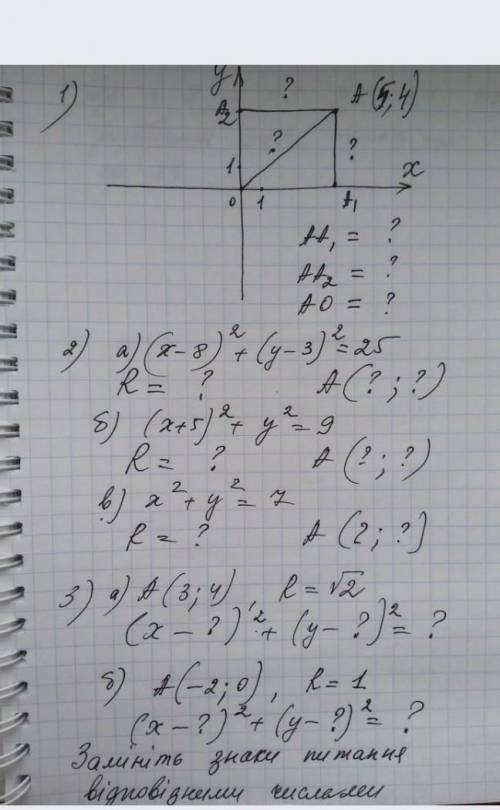 1)
y
A₂
?
A(5; 4)
?
?
1
x
0 1 A₁
AA₁ = ?
AA₂ = ?
AO = ?
2) а) (x-8)² + (y-3)² = 25
R = ? A(?; ?)
б) (x+5)² + y² = 9
R = ? A(?; ?)
в) x² + y² = 7
R = ? A(?; ?)
3) а) A(3; 4), R = √2
(x - ?)² + (y - ?)² = ?
б) A(-2; 0), R = 1
(x - ?)² + (y - ?)² = ?
Замініть знаки питання
відповідними числами